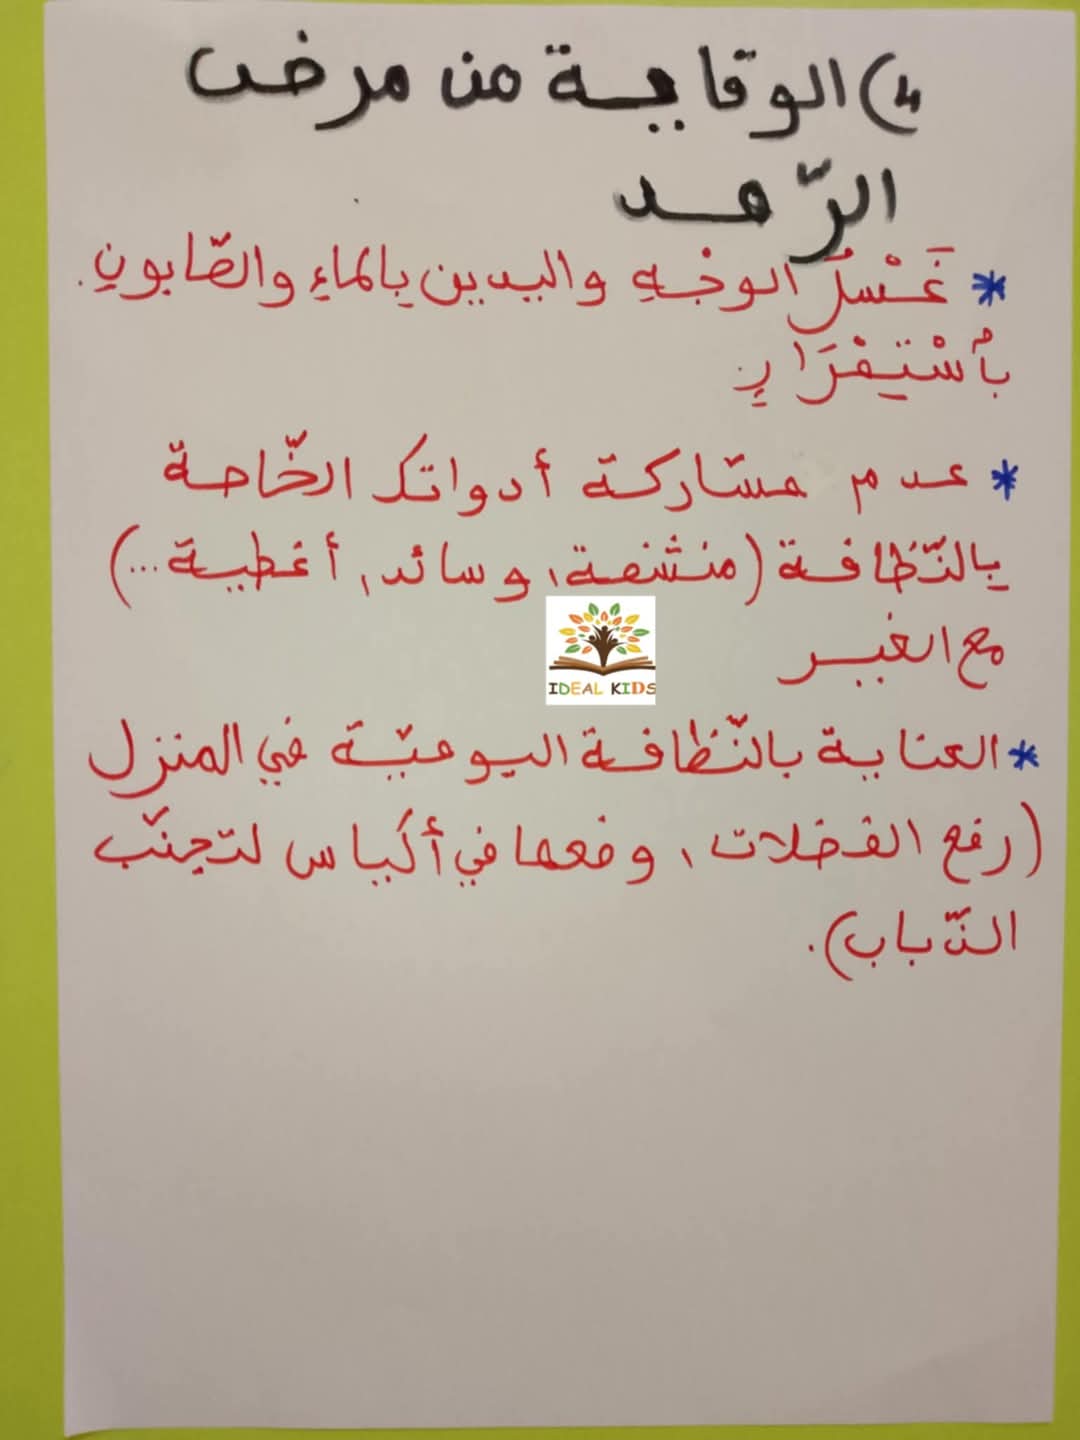 4) الوقاية من مرض
الرّمد
* غَسْلُ الوجْهِ واليدين بِالماءِ والصّابونِ.
بِاُسْتِمْرَارٍ
* عدم مشاركة أدواتك الخّاصة
بِالنّظافة (منشفة، وسائد، أغطية ...)
مع الغير
IDEAL KIDS
* العناية بالنّظافة اليوميّة في المنزل
(رفع الفضلات، وضعها في أكياس لتجنّب
الذّباب).